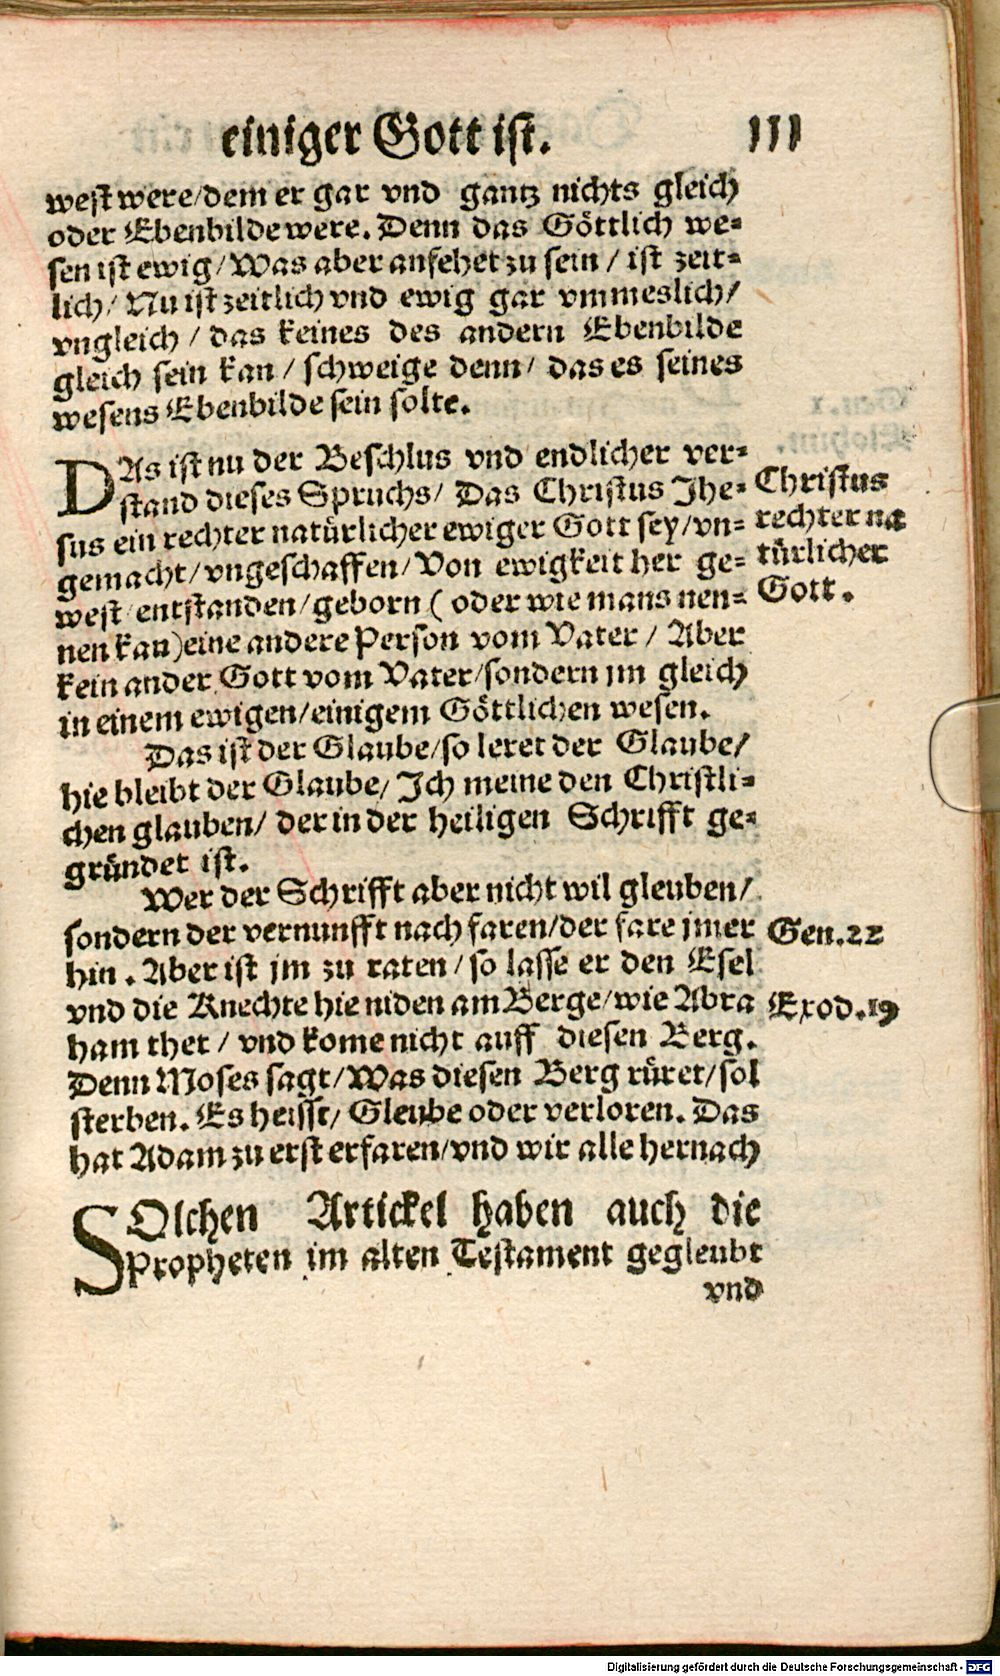 einiger Gott ist. 111
west were/dem er gar vnd gantz nichts gleich
oder Ebenbilde were. Denn das Göttlich we⸗
sen ist ewig/Was aber anfehet zu sein/ist zeit⸗
lich/Nu ist zeitlich vnd ewig gar vnmeslich/
vngleich/das keines des andern Ebenbilde
gleich sein kan/schweige denn/das es seines
wesens Ebenbilde sein solte.
DAs ist nu der Beschlus vnd endlicher ver⸗
stand dieses Spruchs/Das Christus Jhe⸗
sus ein rechter natürlicher ewiger Gott sey/vn⸗
gemacht/vngeschaffen/Von ewigkeit her ge⸗
west/entstanden/geborn (oder wie mans nen⸗
nen kan) eine andere Person vom Vater/Aber
kein ander Gott vom Vater/sondern jm gleich
in einem ewigen/einigem Göttlichen wesen.
Christus
rechter na
türlicher
Gott.
Das ist der Glaube/so leret der Glaube/
hie bleibt der Glaube/Ich meine den Christli⸗
chen glauben/der in der heiligen Schrifft ge⸗
gründet ist.
Wer der Schrifft aber nicht wil gleuben/
sondern der vernunfft nach faren/der fare jmer
hin. Aber ist jm zu raten/so lasse er den Esel
vnd die Knechte hie niden am Berge/wie Abra
ham thet/vnd kome nicht auff diesen Berg.
Denn Moses sagt/Was diesen Berg rüret/sol
sterben. Es heisst/Gleube oder verloren. Das
hat Adam zu erst erfaren/vnd wir alle hernach
Gen.22
Exod.19
SOlchen Artickel haben auch die
Propheten im alten Testament gegleubt
vnd
Digitalisierung gefördert durch die Deutsche Forschungsgemeinschaft - DFG